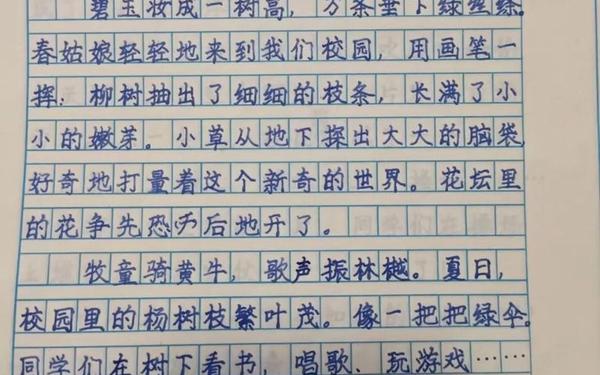 碧玉妆成一树高，万条垂下绿丝绦。
春姑娘轻轻地来到我们校园，用画笔一
挥：柳树抽出了细细的枝条，长满了小
小的嫩芽。小草从地下探出大大的脑袋，
好奇地打量着这个新奇的世界。花坛里
的花争先恐而后地开了。
牧童骑黄牛，歌声振林樾。夏日，
校园里的杨树枝繁叶茂。像一把把绿伞。
同学们在树下看书、唱歌、玩游戏……